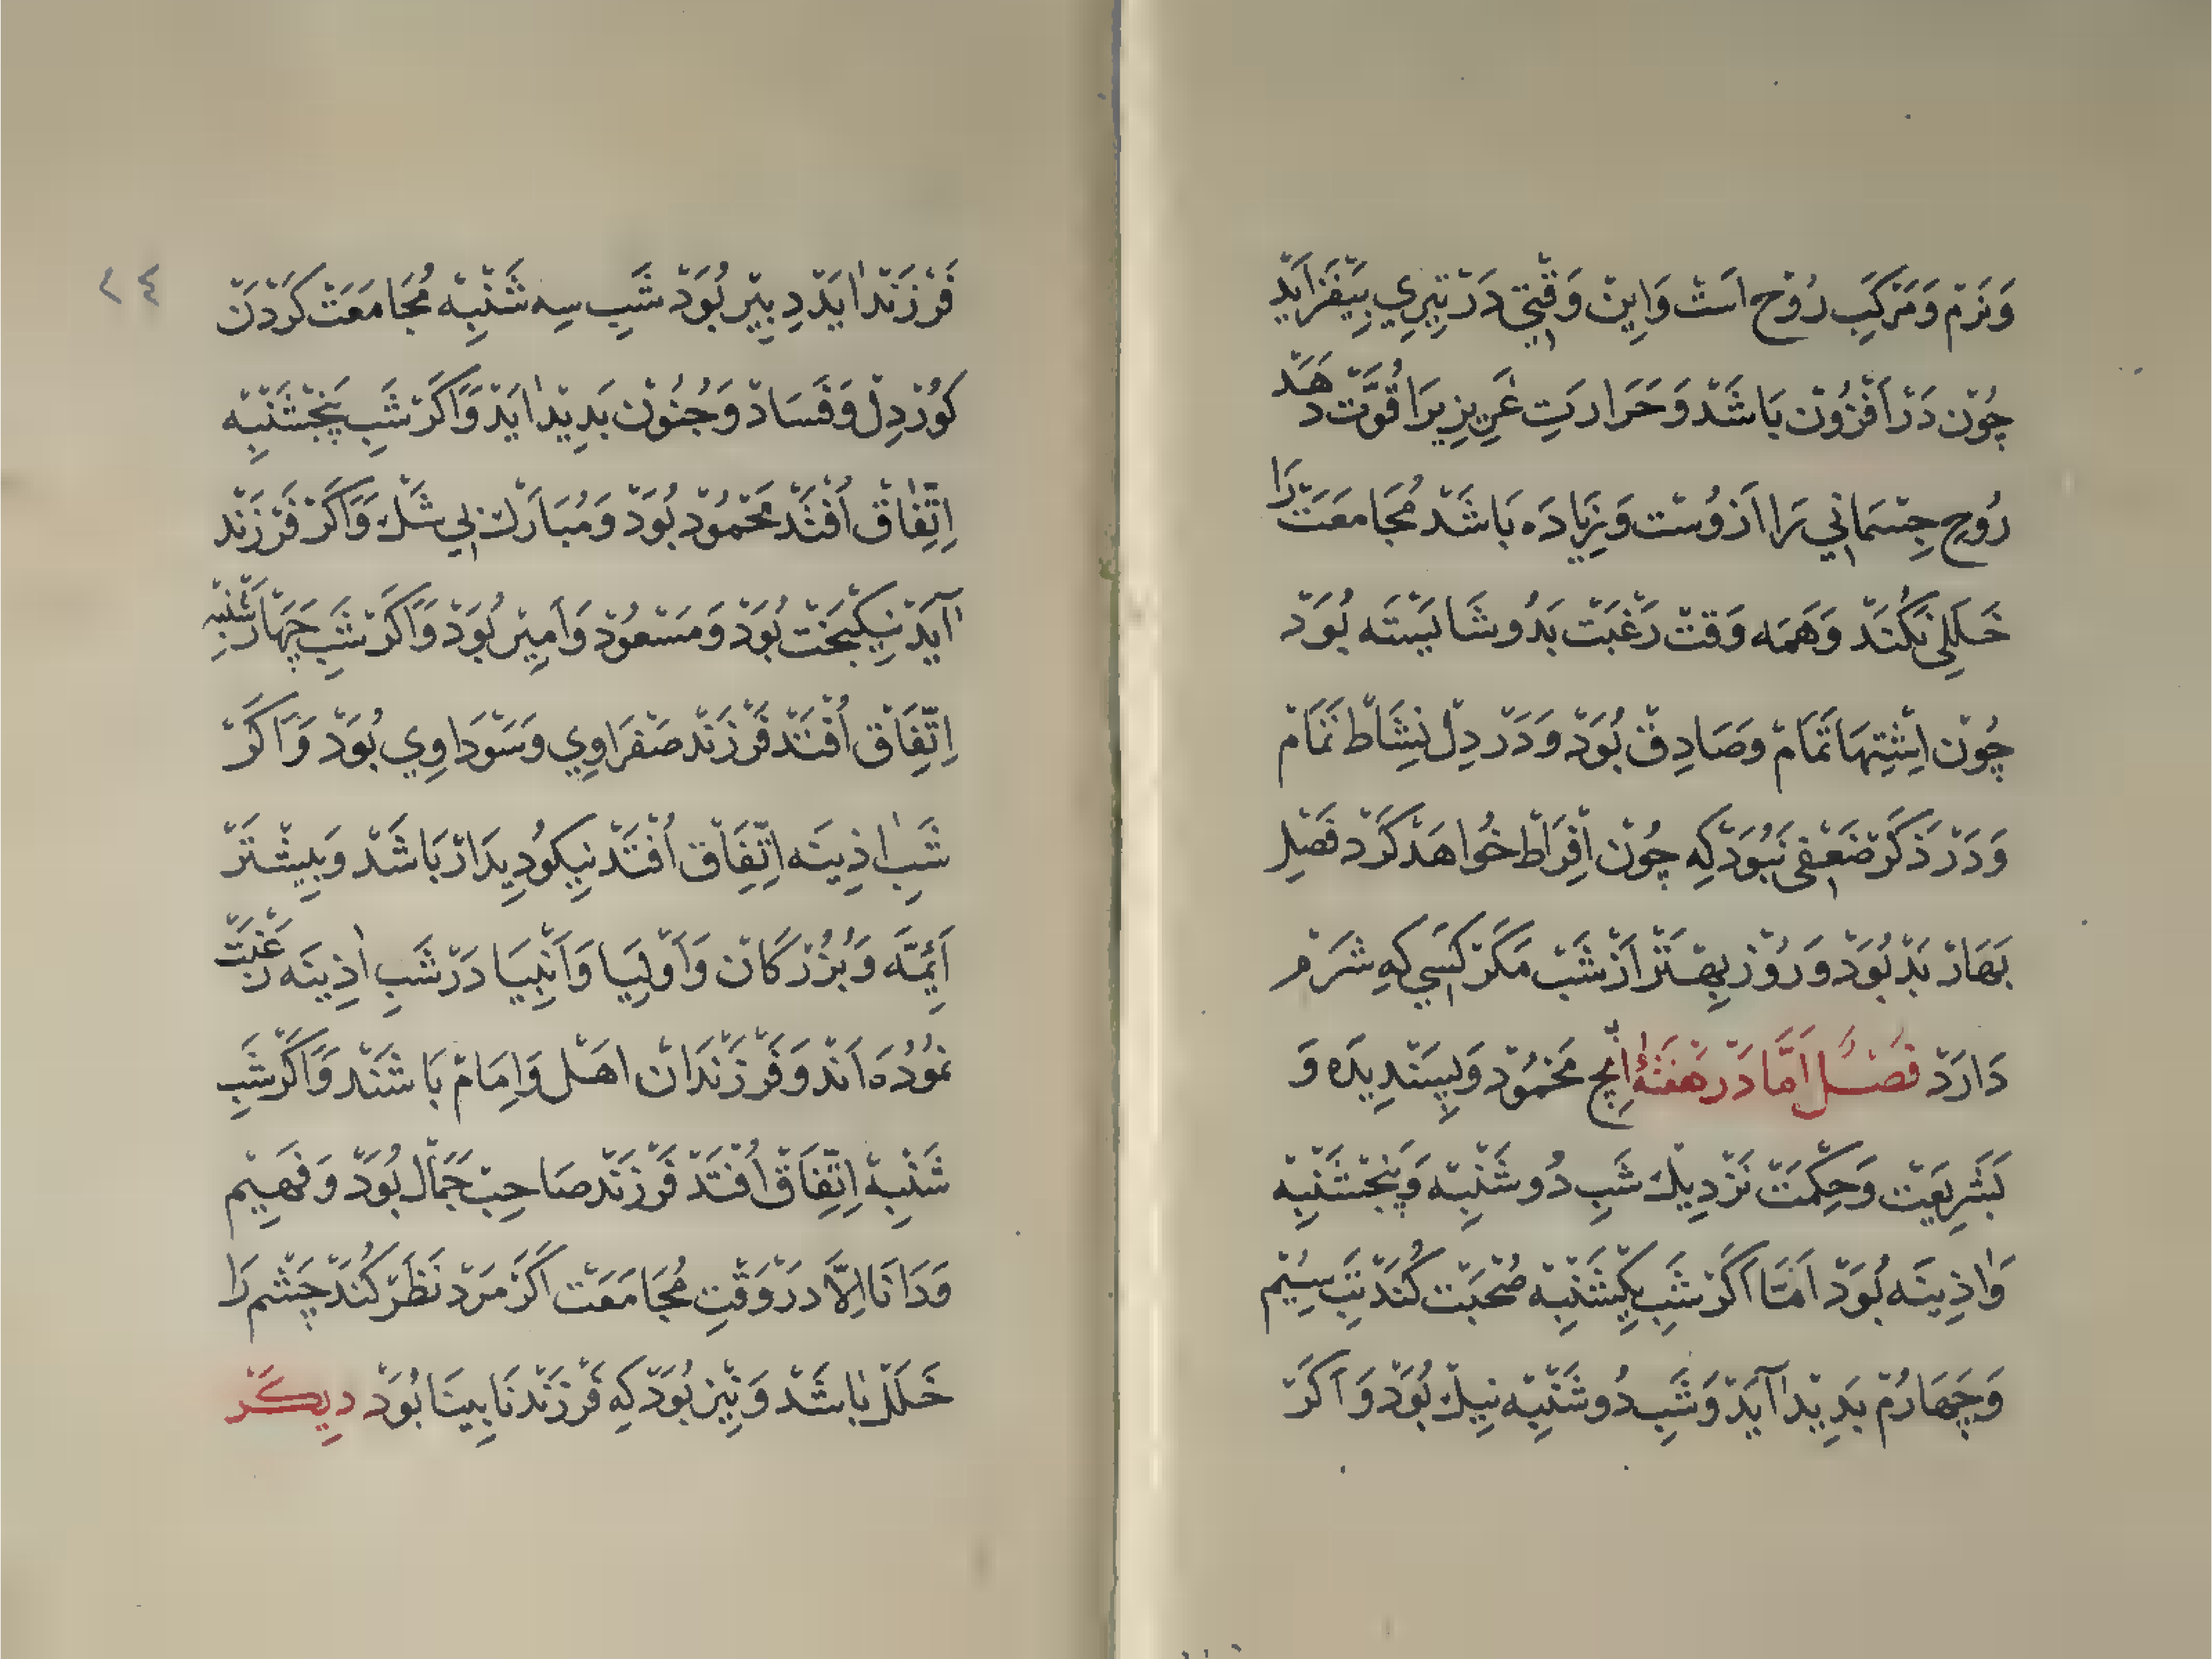 وَنَرْم وَمَرْكَبِ رُوْح اَسْتْ وَاِينْ وَقْتِي دَرْ تِيرِي بِيَفْزَايَدْ
چُوْن دَرْ اَفْزُوْن بَاشَدْ وَحَرَارَتِ غَرِيزِيرَا قُوَّتْ دَهَدْ
رُوْحِ جِسْمَانِي رَا اَزوُسْت وَزِيَادَه بَاشَدْ مُجَامَعَتْ رَا
خَلَلِي نَكُنَدْ وَهَمَه وَقتْ رَغْبَتْ بَدُو شَايَسْتَه بُوَدْ
چُوْن اِشْتِهَا تَمَامْ وصَادِقْ بُوَدْ وَدَرْ دِلْ نِشَاطْ تَمَامْ
وَدَرْ ذَكَرْ ضَعْفِي نَبُوَدْ كِه چُوْن اِفْرَاطْ خُواهَدْ كَرْد فَصْلِ
بَهَارْ بَدْ بُوَدْ وَرُوْز بِهْتَرْ اَزْ شَبْ مَكَرْ كَسِي كِهِ شَرَمْ
دَارَدْ فَصْل اَمَّا دَرْ هَفْتَهٔ اٰنچِ مَحْمُوْد وَپِسَنْدِيدَه وَ
بَشَرِيعَتْ وَحِكْمَتْ نَزْدِيكْ شَبِ دُو شَنْبِه وَپَنْجْشَنْبِه
وَاٰذِينَه بُوَدْ اَمَّا اَكَرْ شَبِ يَكْشَنْبِه صُحْبَتْ كُنَدْ تَبِ سِيُم
وَچَهَارُمْ بَدِيْد آيَدْ وَشَبِ دُو شَنْبِه نِيكْ بُوَدْ وَ اَكَرْ
٢٤
فَرْزَنْد اٰيَدْ دِبِيْر بُوَدْ شَبِ سِه شَنْبِه مُجَامَعَتْ كَرْدَنْ
كَوُرْدِلْ وَفَسَادْ وَجُنُوْن بَدِيْد اٰيَدْ وَاَكَرْ شَبِ پَنْجْشَنْبِه
اِتِّفَاق اُفْتَدْ مَحْمُوْد بُوَدْ وَمُبَارَكْ بِي شَكْ وَاَكَرْ فَرْزَنْد
آيَدْ نِيكْبَخْت بُوَدْ وَمَسْعُوْد وَاَمِيْر بُوَدْ وَاَكَرْ شَبِ چَهَارْشَنْبِه
اِتِّفَاق اُفْتَدْ فَرْزَنْد صَفْرَاوِي وَسَوْدَاوِي بُوَدْ وَاَكَرْ
شَبِ اٰذِينَه اِتِّفَاق اُفْتَدْ نِيكُودِيدَارْ بَاشَدْ وَبِيشْتَرْ
اَئِمَّه وَبُزُرْكَانْ وَاَوْلِيَا وَاَنْبِيَا دَرْ شَبِ اٰذِينَه رَغْبَتْ
نَمُوْدَه اَنْد وَفَرْزَنْدَانْ اهَلْ وَاِمَامْ بَاشَنْد وَاَكَرْ شَبِ
شَنْبِه اِتِّفَاق اُفْتَدْ فَرْزَنْد صَاحِبْ جَمَالْ بُوَدْ وَفَهِيْم
وَدَانَا اِلَّا دَرْ وَقْتِ مُجَامَعَتْ اَكَرْ مَرْد نَظَرْ كُنَدْ چَشْم رَا
خَلَلْ بَاشَدْ وَنِيْز بُوَدْ كِه فَرْزَنْد نَابِينَا بُوَدْ دِيكَرْ